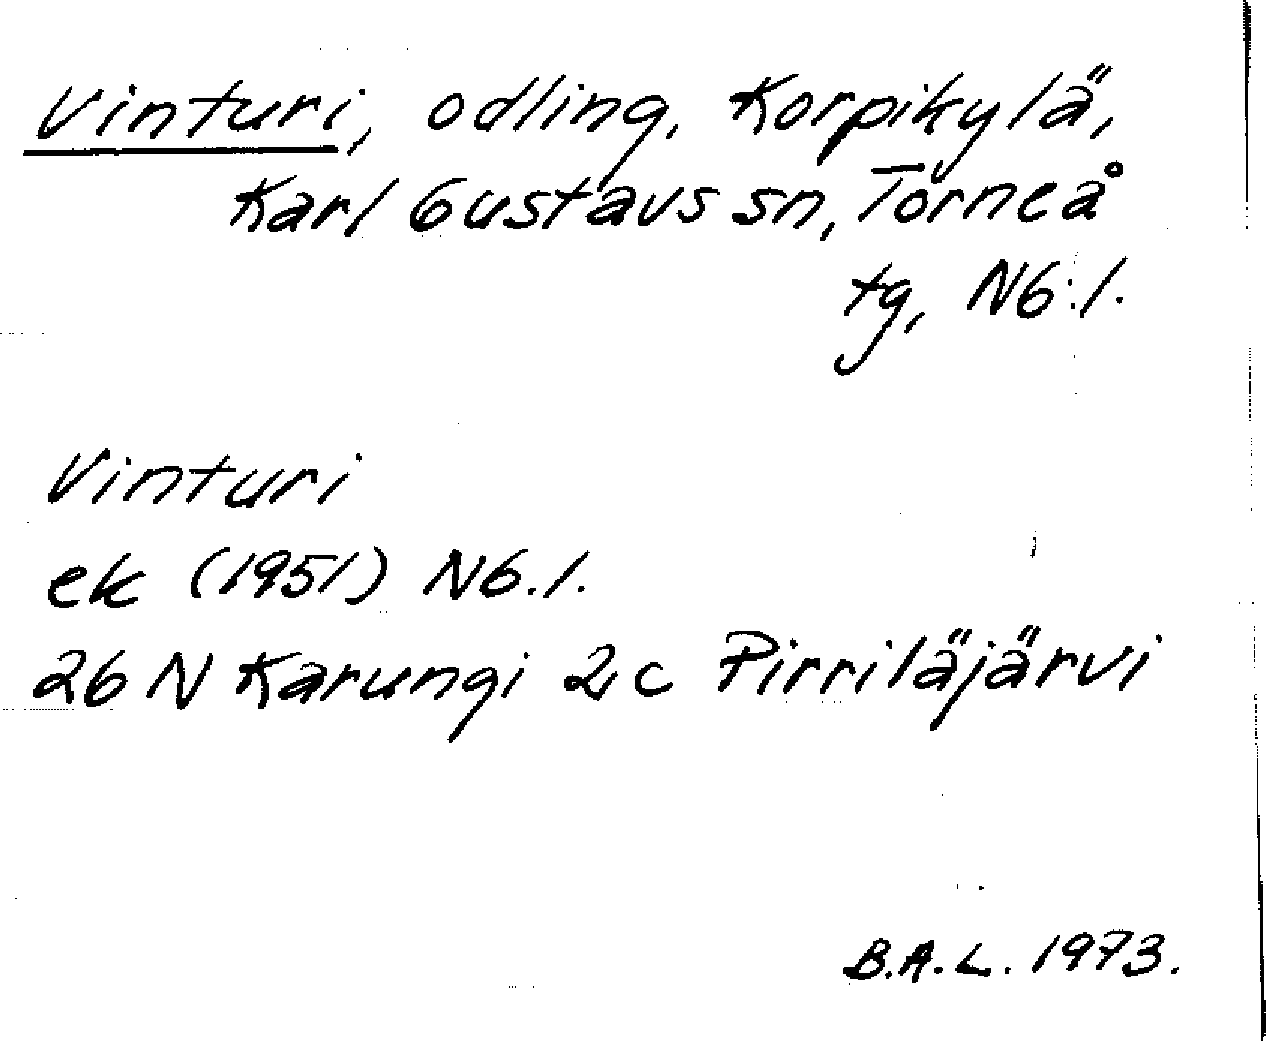 Vinturi, odling, Korpikylä,
Karl Gustavs sn, Torneå
tg, N6:1.
Vinturi
ek (1951) N6.1.
26 N Karungi 2c Pirriläjärvi
B.A.L. 1973.